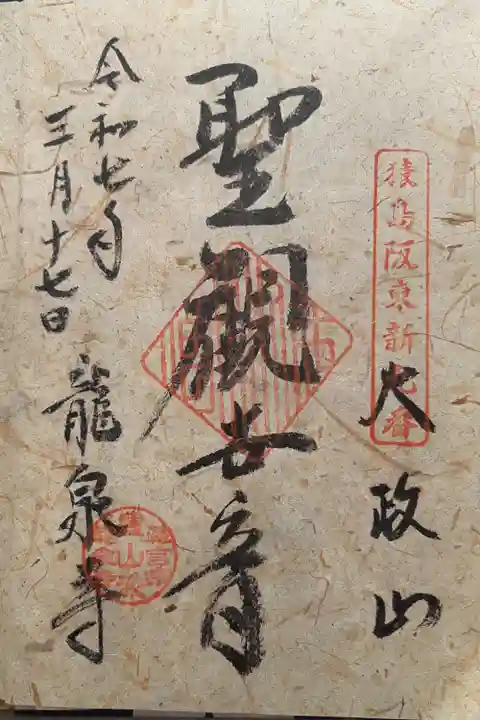 猿島阪東新九番
大政山
聖観世音
令和七年
三月十七日
龍泉寺